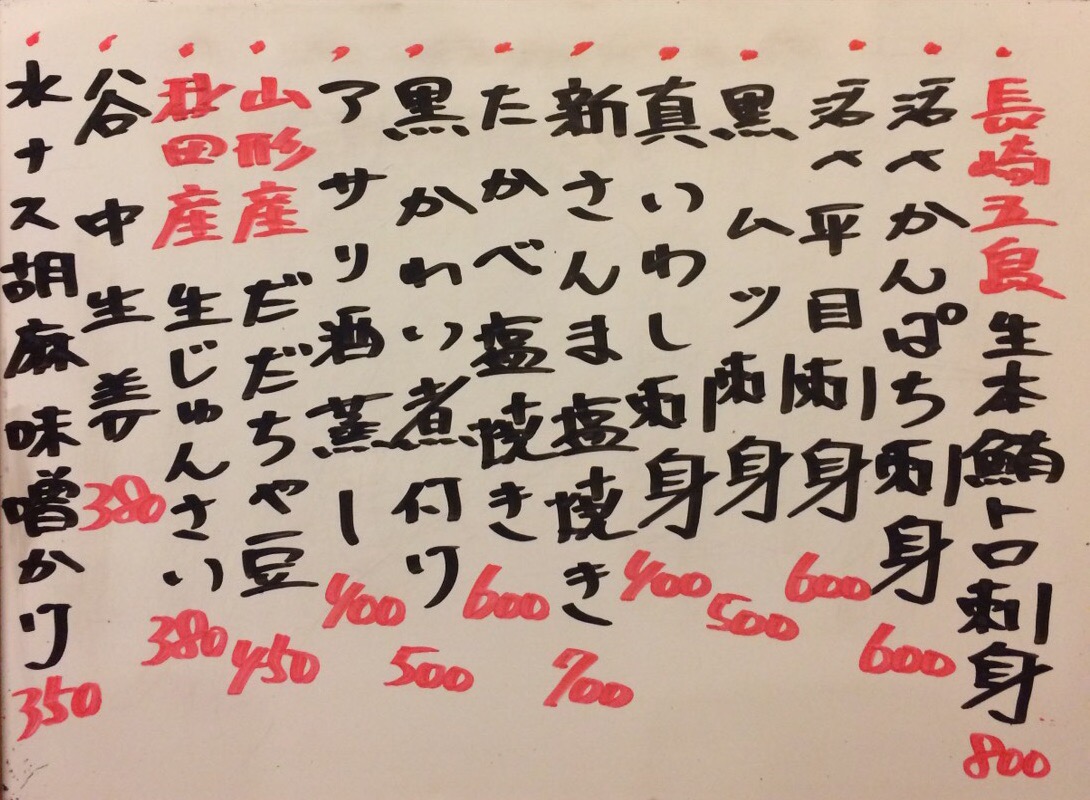 ・長崎五島 生本鮪トロ刺身 800
・活〆かんぱち刺身 600
・活〆平目刺身 600
・黒ムツ刺身 500
・真いわし刺身 400
・新さんま塩焼き 700
・たかべ塩焼き 600
・黒かれい煮付け 500
・アサリ酒蒸し 400
・山形産 だだちゃ豆 450
・秋田産 生じゅんさい 380
・谷中生姜 380
・水ナス胡麻味噌かけ 350